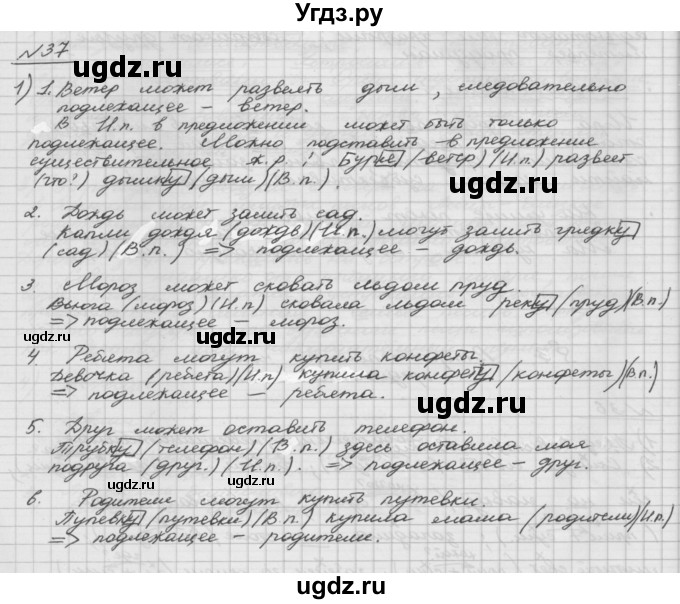 Угдз.ру
№37
1) 1. Ветер может развеять дым, следовательно
подлежащее – ветер.
В И.п. в предложении может быть только
подлежащее. Можно подставить в предложение
существительное ж.р.: Буря (ветер) (И.п.) развеет
(что?) дымку (дым) (В.п.).
2. Дождь может залить сад.
Капли дождя (дождь) (И.п.) могут залить грядку
(сад) (В.п.) => подлежащее – дождь.
3. Мороз может сковать льдом пруд.
Вьюга (мороз) (И.п) сковала льдом реку (пруд) (В.п.)
=> подлежащее – мороз.
4. Ребята могут купить конфеты.
Девочка (ребята) (И.п) купила конфету (конфеты) (В.п.)
=> подлежащее – ребята.
5. Друг может оставить телефон.
Трубку (телефон) (В.п.) здесь оставила моя
подруга (друг.) (И.п.). => подлежащее – друг.
6. Родители могут купить путевки.
Путевку (путевки) (В.п.) купила мама (родители) (И.п.)
=> подлежащее – родители.
ugdz.ru
ugdz.ru
ugdz.ru
ugdz.ru
ugdz.ru
ugdz.ru
ugdz.ru
ugdz.ru
ugdz.ru
ugdz.ru